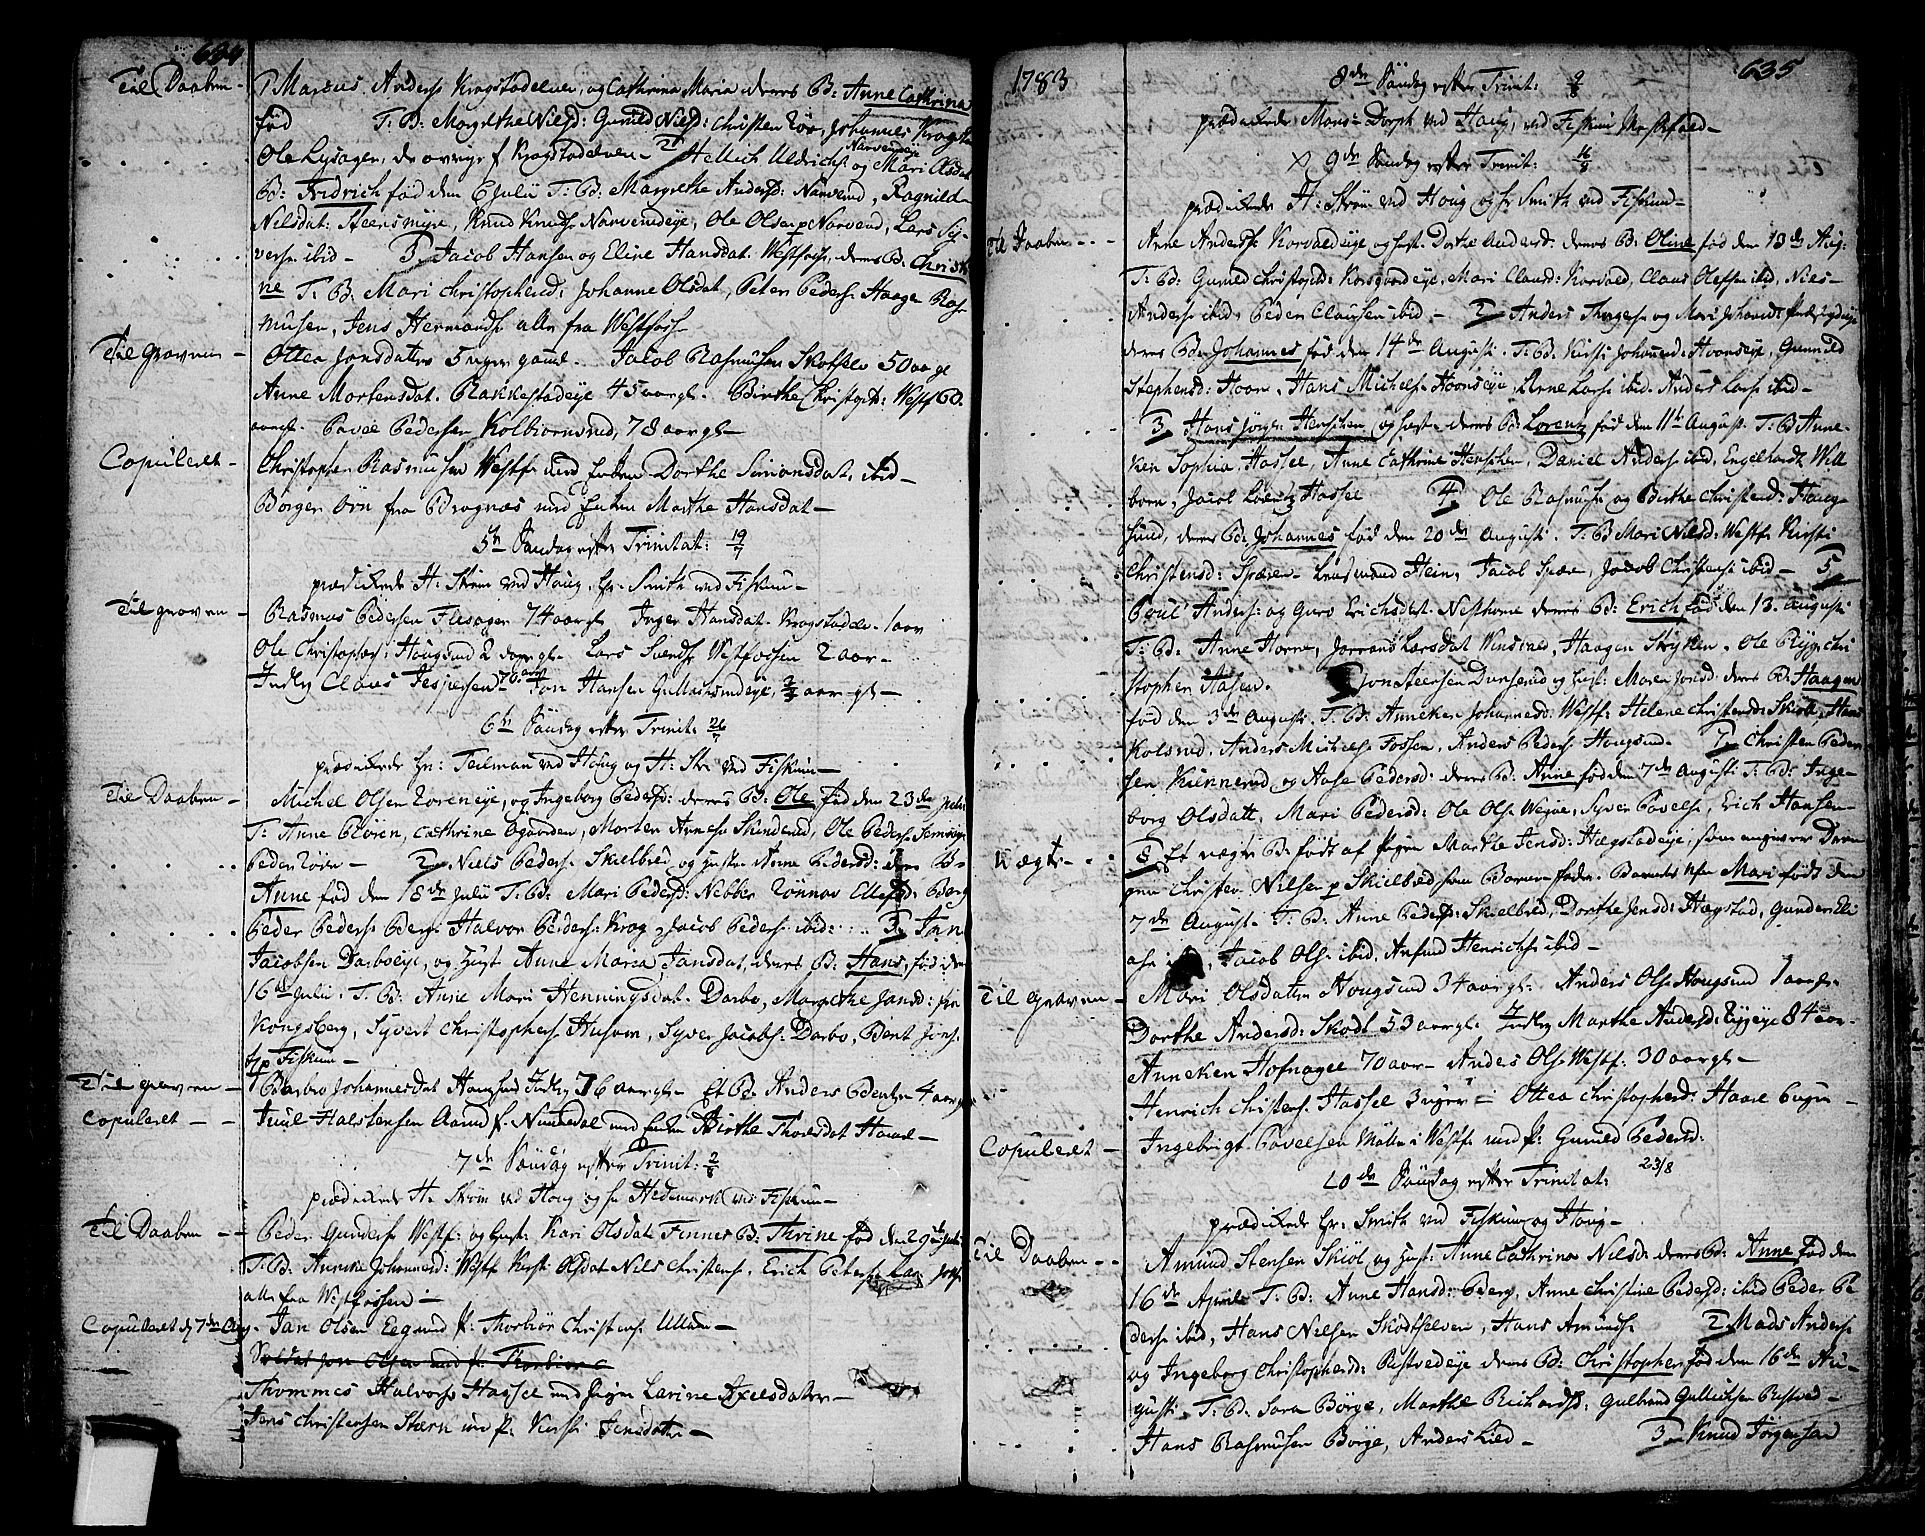 634
Til Daaben - 1 Marcus Anders: Krogstadelven, og Cathrina Maria deres B: Anne Cathrina
fød T: B: Margrethe Nielsd: Gunild Nielsd: Christen Lør, Johannes Krogst
Ole Lysager, de øvrige f Krogstadelven - 2 Hellich Uldrichs: og Mari Olsdat Narverudeye
B: Fridrich fød den 6 Julii T: B: Margrethe Andersd: Narverud, Ragnild
Nilsdat: Steensmyre, Knud Knuds: Narverudeye, Ole Olsen p Narverud, Lars Sy-
vers: ibid - 3 Jacob Hansen og Eline Hansdat: Westfosse, deres B: Christi
ne T: B: Mari Christophersd: Johanne Olsdat, Peter Peders: Haagen Ras-
musen, Jens Hermands: alle fra Westfoss
Til Graven - Ottea Jonsdatter 5 uger gaml. Jacob Rasmusen Skotselv 50 aar gl
Anne Mortensdat. Rakkestadeye 45 aar gl. Birthe Christophd: Westf 60
aar gl. Povel Pedersen Kolbiørnsrud, 78 aar gl -
Copuleret - Christopher Rasmusen Westf: med Enken Dorthe Simonsdat. ibid -
Børger Ørn fra Bragnæs med Enken Marthe Hansdat -
5te Søndag efter Trinitat: 19/7
prædikede H: Strøm ved Houg, Hr. Smith ved Fiskum -
Til graven - Rasmus Pedersen Flesager 74 aar gl. Inger Hansdat. Krogstadelv. 1 aar
Ole Christophers: Hougsund 2 aar gl. Lars Svends: Westfossen 2 aar -
Indlg Claus Jespersen 70 aar Jon Hansen Gunnersrudeye, 3/4 aar gl -
6te Søndag efter Trinit: 26/7
prædikede Hr: Teilman ved Houg og H: Str ved Fiskum -
Til Daaben - Michel Olsen Loreneye, og Ingeborg Pedersd: deres B: Ole, fød den 23de Julii
T: Anne Floren, Cathrine Ogaarden, Morten Arnes: Skinderud, Ole Peders: Semseye
Peder Løver - 2 Niels Peders: Skielbred og Hustr: Anne Pedersd: deres B-
Anne fød den 18de Julii T: B: Mari Pedersd: Nebbe, Lønnov Ellefsd: Berg
Peder Peders: Berg: Halvor Peders: Krog, Jacob Peders: ibid: 3 Jan
Jacobsen Darboeye, og Hust Anne Maria Jansdat, deres B: Hans, fød den
16de Julii. T: B: Anne Mari Henningsdat. Darbo, Margrethe Jansd: fra
Kongsberg, Syvert Christophers: Husven, Syver Jacobs: Darbo, Bent Jons:
fra Fiskum -
Til graven - Barbro Johannesdat Hougsund Indlg 76 aar gl - Et B: Anders Pedersen 4 aar
Copuleret - - Juul Halstensen Aarud f. Numedal med Enken Birthe Thorsdat Haare -
7de Søndag efter Trinit: 2/8
prædikede H. Strøm ved Houg og Hr Hedemark ved Fiskum -
Til Daaben - Peder Gunders: Westf: og Hust: Kari Olsdat Finnes B: Thrine fød den 29 Julii
T: B: Anneke Johannesd: Westf Kirst: Olsdat Niels Christens: Erich Peters: Lars Jons:
alle fra Westfossen -
Copuleret d 7de Aug. Jan Olsen Eegerud P: Thorbiør Christens: Ullern -
Soldat Jon Olsen med P: Thorbiør C
Thommes Halvors: Hassel med Pigen Larine Axelsdatter -
Jens Christensen Stærn med P: Kirsti Jensdatter -
1783
635
8de Søndag efter Trinit: 9/8
prædikede Mons: Dorph ved Houg, ved Fiskum Messefald -
9de Søndag efter Trinit: 16/8
prædikede H: Strøm ved Houg og Hr Smith ved Fiskum -
Til Daaben - - - Arne Anders: Korvaldeye og Hust. Dorthe Andersd. deres B: Oline fød den 13de Aug:
T: B: Gunild Christophd: Korsgaardeye, Mari Clausd: Korvald, Claus Olefsen ibid, Niels
Anders: ibid, Peder Clausen ibid - 2 Anders Thrges: og Mari Johansd: Præstegdseye
deres B: Johannes fød den 14de Augusti. T: B: Kirsti Johansd: Hoonseye, Gunild
Stephensd: Hoon, Hans Michels: Hoonseye, Arne Lars: ibid. Anders Lars: ibid -
3 Hans Jørgen Henschen, og Hust: deres B: Lorentz fød den 11te August. T: B Anne-
ken Sophia Hassel, Anne Cathrine Henschen, Daniel Anders: ibid, Engelhardt Will
born, Jacob Lorentz Hassel 4 Ole Rasmus: og Birthe Christensd: Houg-
sund, deres B: Johannes fød den 20de Augusti. T: B Mari Nilsd: Westf Kirsti
Christensd: Spæren - Lensmand Hein, Jacob Spær, Jacob Christens: ibid - 5
Poul Anders: og Guro Erichsdat. Nesthorne deres B: Erich fød den 13. Augusti
T: B: Anne Horne, Jørrans Larsdat Vinsrud, Haagen Skryken. Ole Rygg Chri
stopher Aasen. Jon Steersen Dunserud og Hust: Maren Jonsd: deres B: Haagen
fød den 3de Augusti. T: B: Anneken Johannesd: Westf: Helene Christensd: Skiøll, Hans
Kolsrud, Anders Michels: Fossen, Anders Peders: Hougsund. 7 Christen Peder
sen Kunnerud og Aase Pedersd: deres B: Anne fød den 7de Augusti T: B: Inge-
borg Olsdatt, Mari Pedersd: Ole Ols: Wegne, Syver Povels: Erich Hansen -
Uægte - - 8 Et uægte B: født af Pigen Marthe Jensd: Hægstadeye, som angiver Dren-
gen Christen Nilsen p Skielbred som Barnefader. Barnets Nfn Mari født den
7de August. T: B: Anne Pedersd: Skielbred, Dorthe Jensd: Hægstad, Gunder Eli
as: ibid, Jacob Ols: ibid. Ansund Henrichs: ibid -
Til Graven - Mari Olsdatter Hougsund 34 aar gl. Anders Ols: Hougsund 1 aar -
Dorthe Andersd: Skodt 53 aar gl. Indlg Marthe Andersd: Ryggeye 84 aar -
Anneken Hofnagel 70 aar - Anders Ols: Westf: 30 aar gl -
Henrich Christens: Hassel 3 uger = Ottea Christophersd: Haare 6 uger -
Copuleret - Ingebrigt Povelsen Møller i Westf med P: Gunild Pedersd:
10de Søndag efter Trinitat: 23/8
prædikede Hr: Smith ved Fiskum og Houg -
Til Daaben - - Amund Stensen Skiøl og Hust: Anne Cathrina Nilsd: deres B: Anne fød den
16de April T: B: Anne Hansd: Berg, Anne Christine Pedersd: ibid Peder Pe
ders: ibid, Hans Nilsen Skodtselven, Hans Amunds: 2 Mads Anders:
og Ingeborg Christophersd: Rustvedeye deres B: Christopher fød den 16de Au-
gusti. T: B: Sara Børge, Marthe Richardsd: Gulbrand Gullichsen Rustvd -
Hans Rasmusen Børge, Anders Lied - 3 Knud Jørgensen